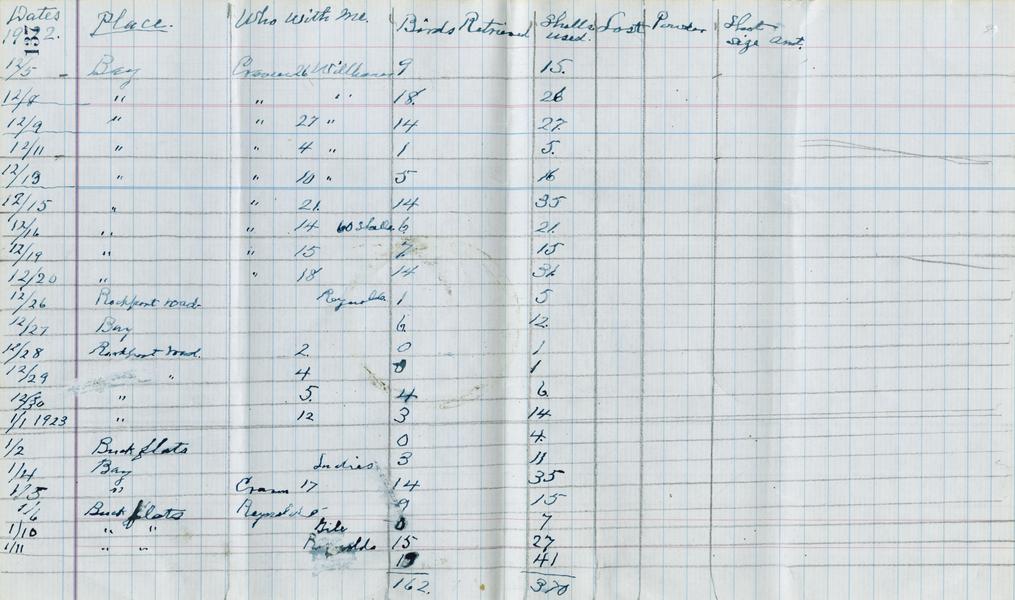 Dates Place. Who With Me. Birds Retrieved Shells used. Lost Powder Shot size amt.
137
12/5 Bay 26 Williams 9 15.
12/8 " " " 18. 26
12/9 " " 27 " 14 27.
12/11 " " 4 " 1 5.
12/13 " " 10 " 5 16
12/15 " " 21. 14 35
12/16 " " 14 6 21.
12/19 " " 15 7 15
12/20 " " 18 14 31
12/26 Rockport road. Reynolds. 1 5
12/27 Bay 6. 12.
12/28 Rockport road. 2. 0 1
12/29 " 4 0 1
12/30 " 5. 4 6.
1/1 1923 " 12 3 14
1/2 Buck flats 0 4.
1/4 Bay 3 11
1/5 " 17 14 35
1/6 Buck flats Reynolds 9 15
1/10 " " 0 7
1/11 " " Reynolds 15 27
19 41
162. 370